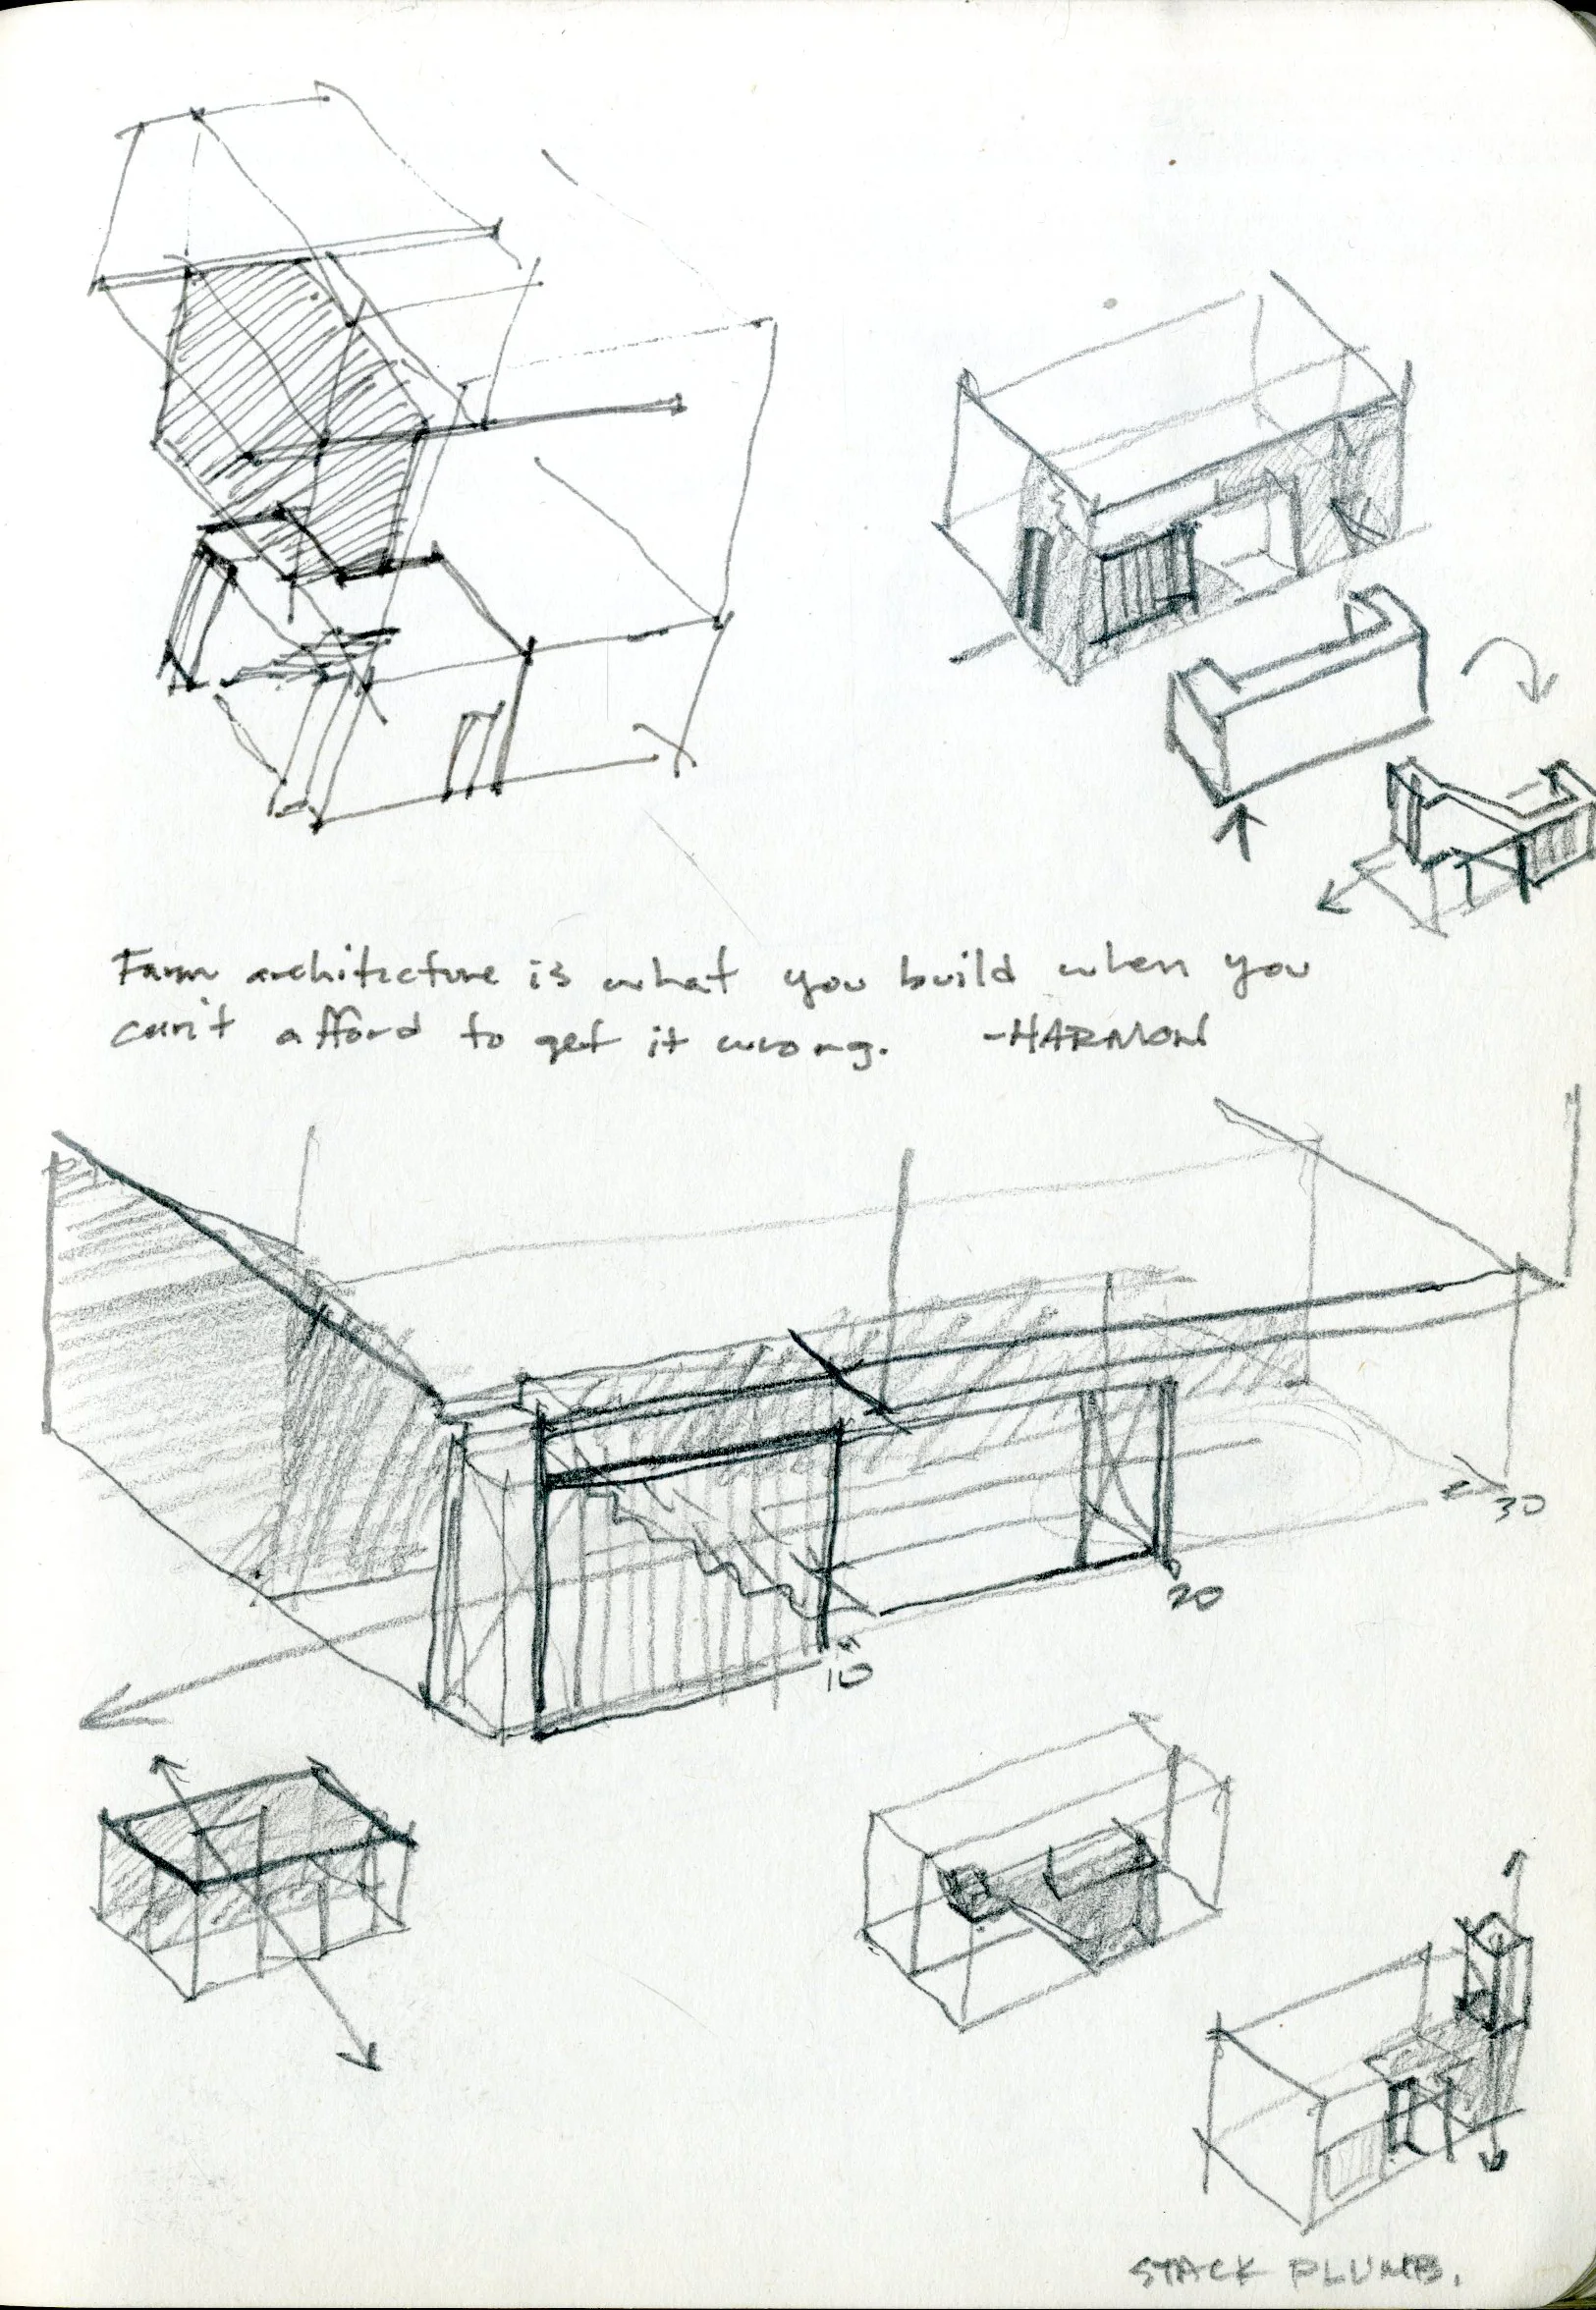 Farm architecture is what you build when you
can't afford to get it wrong. -HARMON
30
20
10
STACK PLUMB.